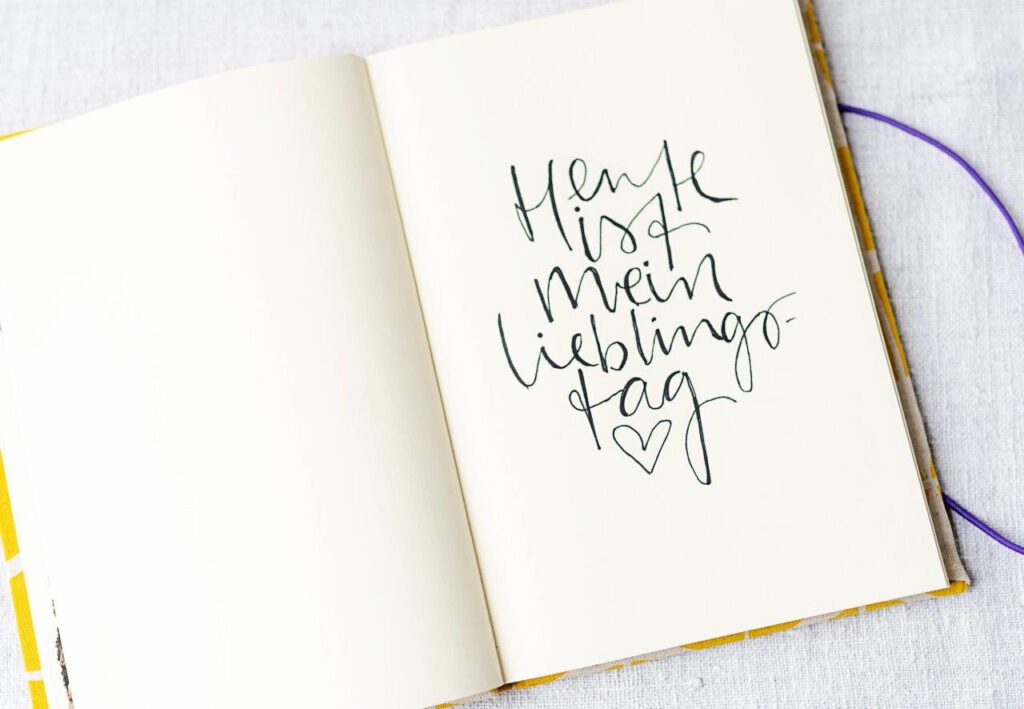 Heute
ist
mein
lieblings-
tag